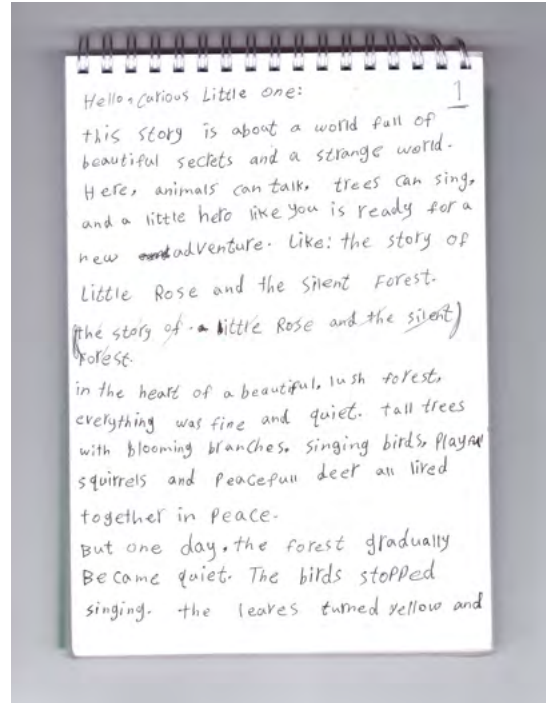 Hello, curious Little one:
1
this story is about a world full of
beautiful secrets and a strange world.
Here, animals can talk, trees can sing,
and a little hero like you is ready for a
new adventure. Like: the story of
Little Rose and the Silent Forest.
(the story of a little Rose and the silent)
Forest.
in the heart of a beautiful, lush forest,
everything was fine and quiet. tall trees
with blooming branches, singing birds, Playful
squirrels and Peacefull deer all lived
together in Peace.
But one day, the forest gradually
Became quiet. The birds stopped
singing. the leaves turned yellow and